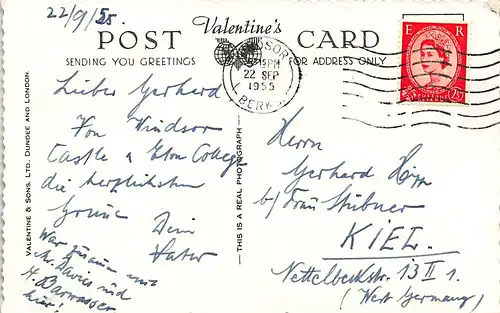 22/9/55.
Valentine's
POST CARD
SENDING YOU GREETINGS
FOR ADDRESS ONLY
WINDSOR
5 15PM
22 SEP
1955
BERKS
E R
2½D
Lieber Gerhard
Von Windsor
Castle & Eton College
die herzlichsten
Grüsse Dein
Vater
War zusammen mit
Mr. Davies und
H. Barwasser
hier!
Herrn
Gerhard
b/ Frau Stübner
KIEL.
Nettelbeckstr. 13 II r.
(West Germany)
VALENTINE & SONS, LTD., DUNDEE AND LONDON.
— THIS IS A REAL PHOTOGRAPH —